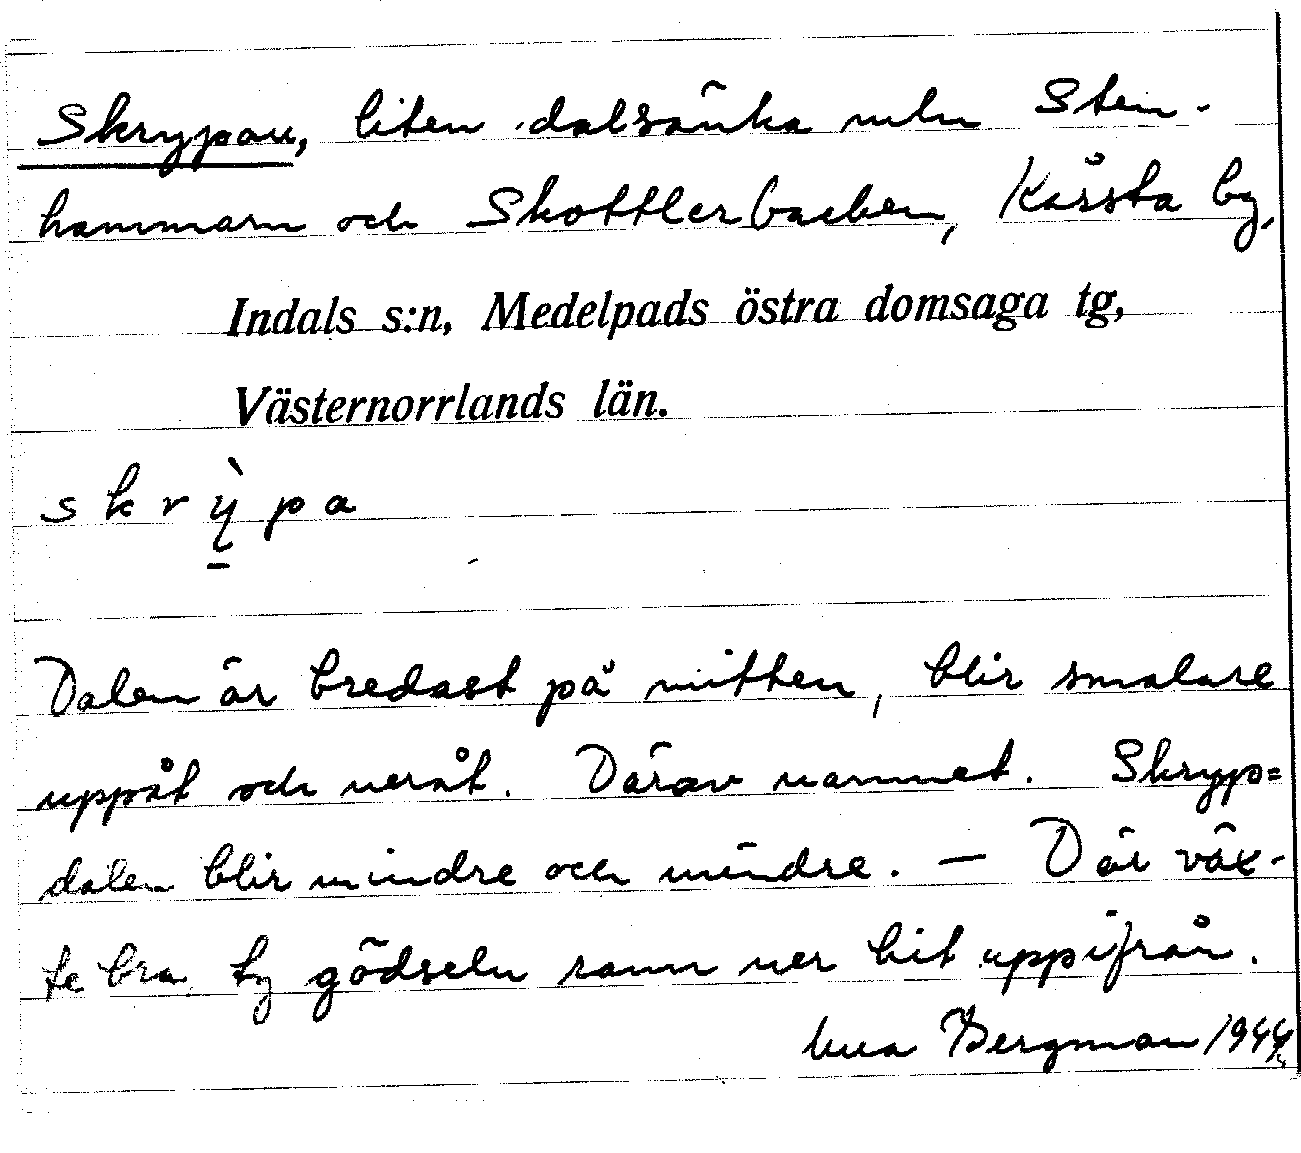 Skrypan, liten dalsänka mln Sten-
hammarn och Skottlerbacken, Kårsta by,
Indals s:n, Medelpads östra domsaga tg,
Västernorrlands län.
s k r ỳ p a
Dalen är bredast på mitten, blir smalare
uppåt och neråt. Därav namnet. Skryp=
dalen blir mindre och mindre. — Där väx-
te bra ty gödseln rann ner hit uppifrån.
Bergman 1944